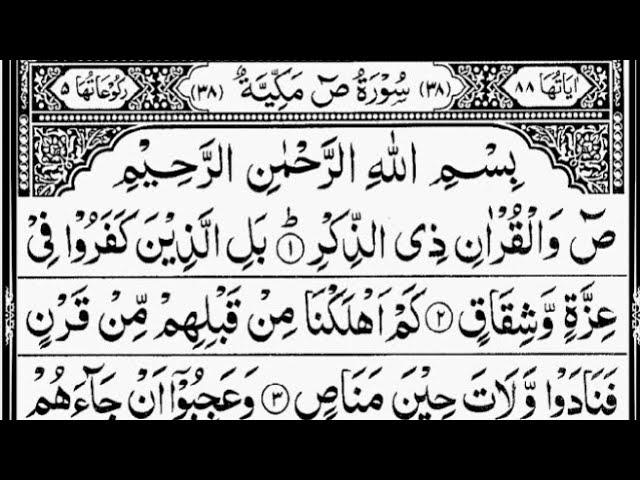 اٰیَاتُهَا ۸۸ (۳۸) سُوْرَةُ صٓ مَكِّیَّةٌ (۳۸) رُكُوْعَاتُهَا ۵
بِسْمِ اللهِ الرَّحْمٰنِ الرَّحِیْمِ
صٓ وَالْقُرْاٰنِ ذِی الذِّكْرِ ؕ۱ بَلِ الَّذِیْنَ كَفَرُوْا فِیْ
عِزَّةٍ وَّشِقَاقٍ ۲ كَمْ اَهْلَكْنَا مِنْ قَبْلِهِمْ مِّنْ قَرْنٍ
فَنَادَوْا وَّلَاتَ حِیْنَ مَنَاصٍ ۳ وَعَجِبُوْۤا اَنْ جَآءَهُمْ